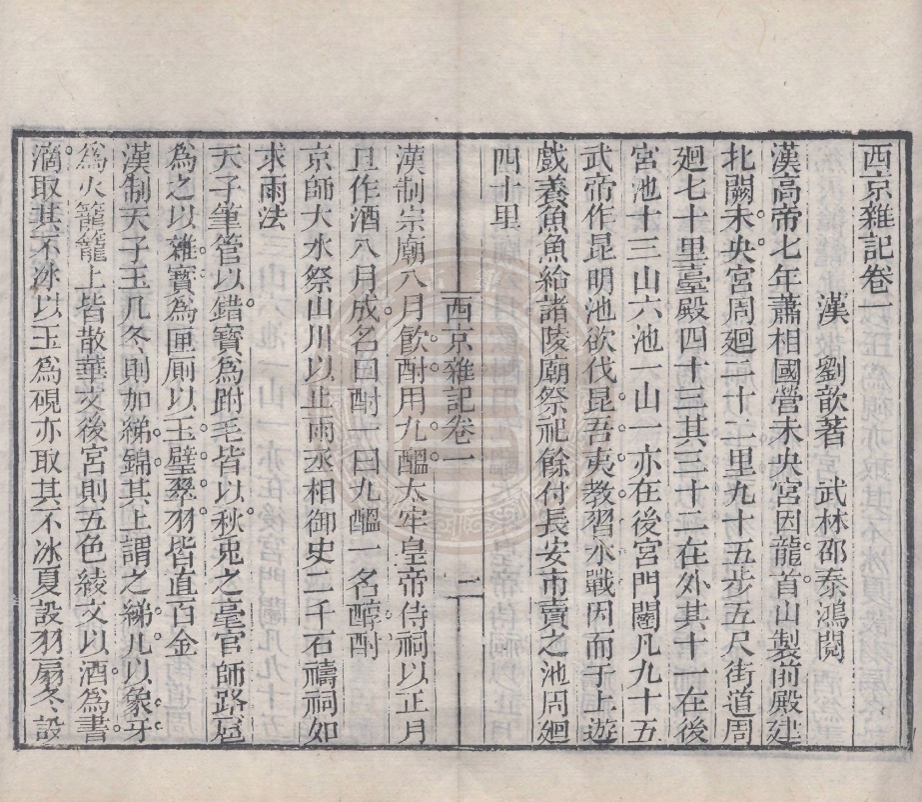 西京雜記卷一
漢　劉歆著　武林邵泰鴻閱
漢高帝七年蕭相國營未央宮因龍首山製前殿建
北闕未央宮周廻二十二里九十五步五尺街道周
廻七十里臺殿四十三其三十二在外其十一在後
宮池十三山六池一山一亦在後宮門闥凡九十五
武帝作昆明池欲伐昆吾夷教習水戰因而于上遊
戲養魚魚給諸陵廟祭祀餘付長安市賣之池周廻
四十里
西京雜記卷一　二
漢制宗廟八月飲酎用九醞太牢皇帝侍祠以正月
旦作酒八月成名曰酎一曰九醞一名醇酎
京師大水祭山川以止雨丞相御史二千石禱祠如
求雨法
天子筆管以錯寶為跗毛皆以秋兎之毫官師路扈
為之以雜寶為匣厠以玉璧翠羽皆直百金
漢制天子玉几冬則加綈錦其上謂之綈几以象牙
為火籠籠上皆散華文後宮則五色綾文以酒為書
滴取其不冰以玉為硯亦取其不冰夏設羽扇冬設